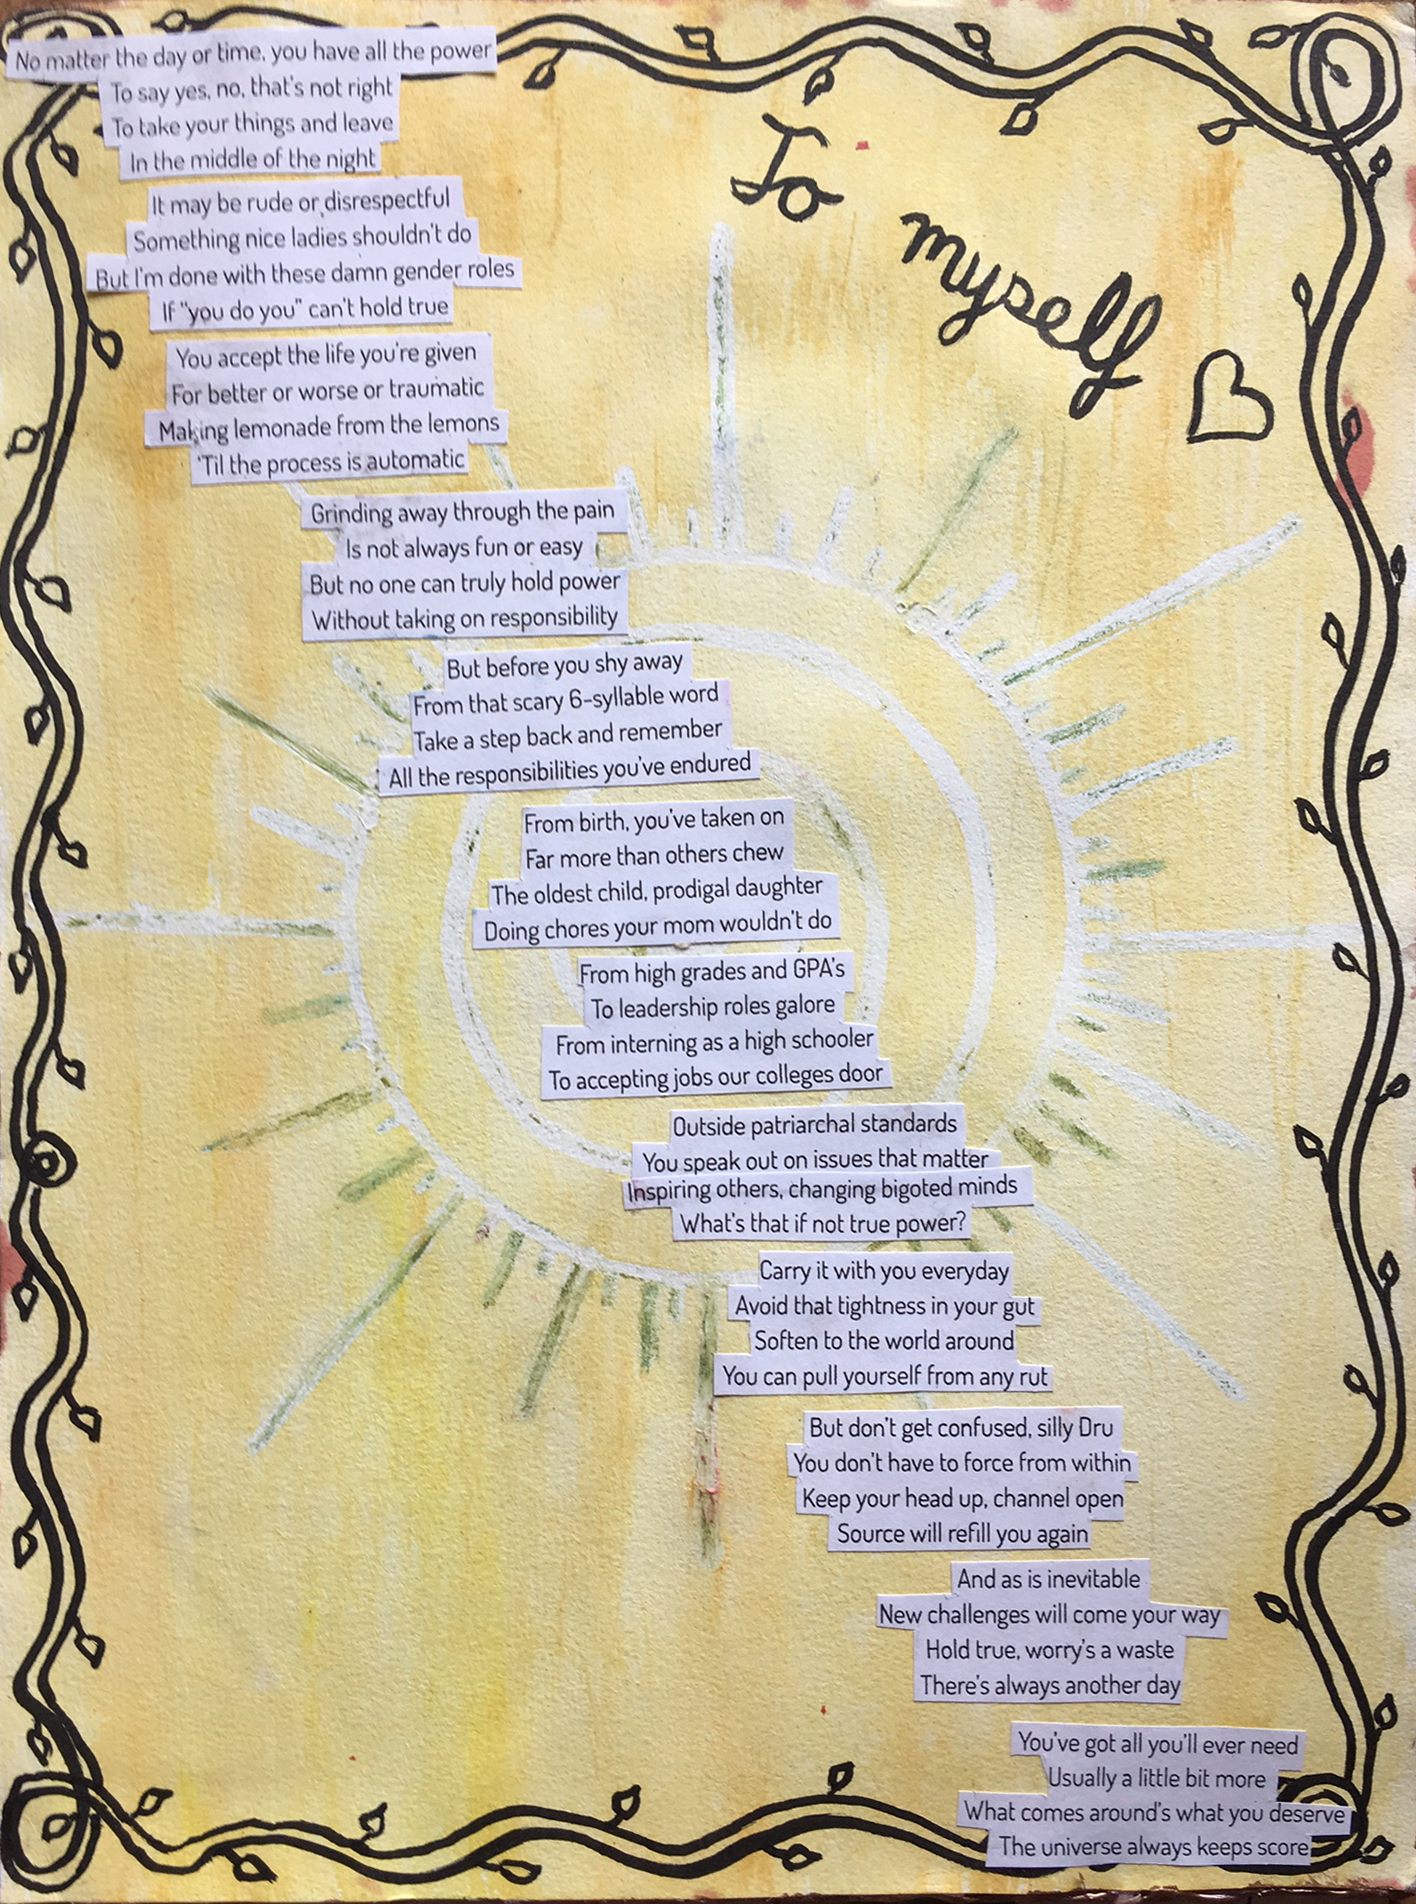 To
myself
No matter the day or time, you have all the power
To say yes, no, that's not right
To take your things and leave
In the middle of the night
It may be rude or disrespectful
Something nice ladies shouldn't do
But I'm done with these damn gender roles
If "you do you" can't hold true
You accept the life you're given
For better or worse or traumatic
Making lemonade from the lemons
'Til the process is automatic
Grinding away through the pain
Is not always fun or easy
But no one can truly hold power
Without taking on responsibility
But before you shy away
From that scary 6-syllable word
Take a step back and remember
All the responsibilities you've endured
From birth, you've taken on
Far more than others chew
The oldest child, prodigal daughter
Doing chores your mom wouldn't do
From high grades and GPA's
To leadership roles galore
From interning as a high schooler
To accepting jobs our colleges door
Outside patriarchal standards
You speak out on issues that matter
Inspiring others, changing bigoted minds
What's that if not true power?
Carry it with you everyday
Avoid that tightness in your gut
Soften to the world around
You can pull yourself from any rut
But don't get confused, silly Dru
You don't have to force from within
Keep your head up, channel open
Source will refill you again
And as is inevitable
New challenges will come your way
Hold true, worry's a waste
There's always another day
You've got all you'll ever need
Usually a little bit more
What comes around's what you deserve
The universe always keeps score